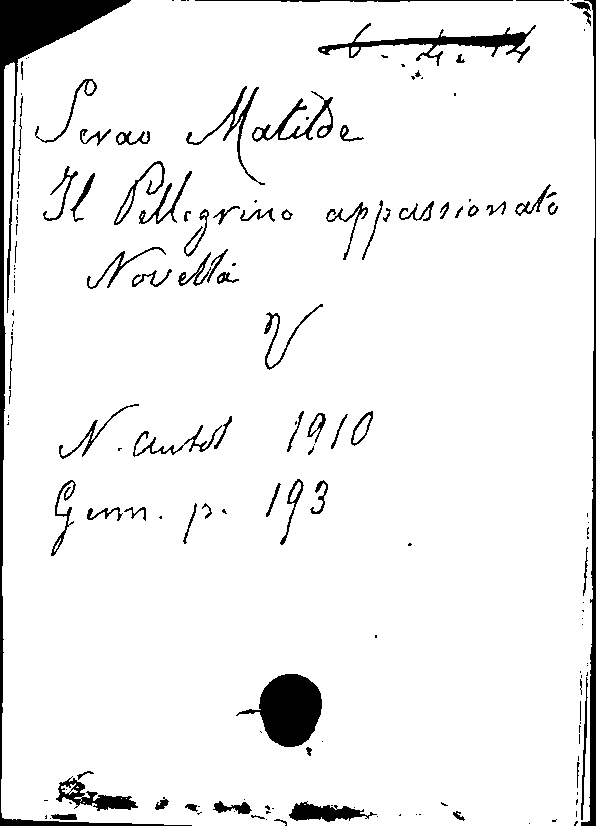 6. 4. 14
Serao Matilde
Il Pellegrino appassionato
Novella
V
N. Antol 1910
Genn. p. 193